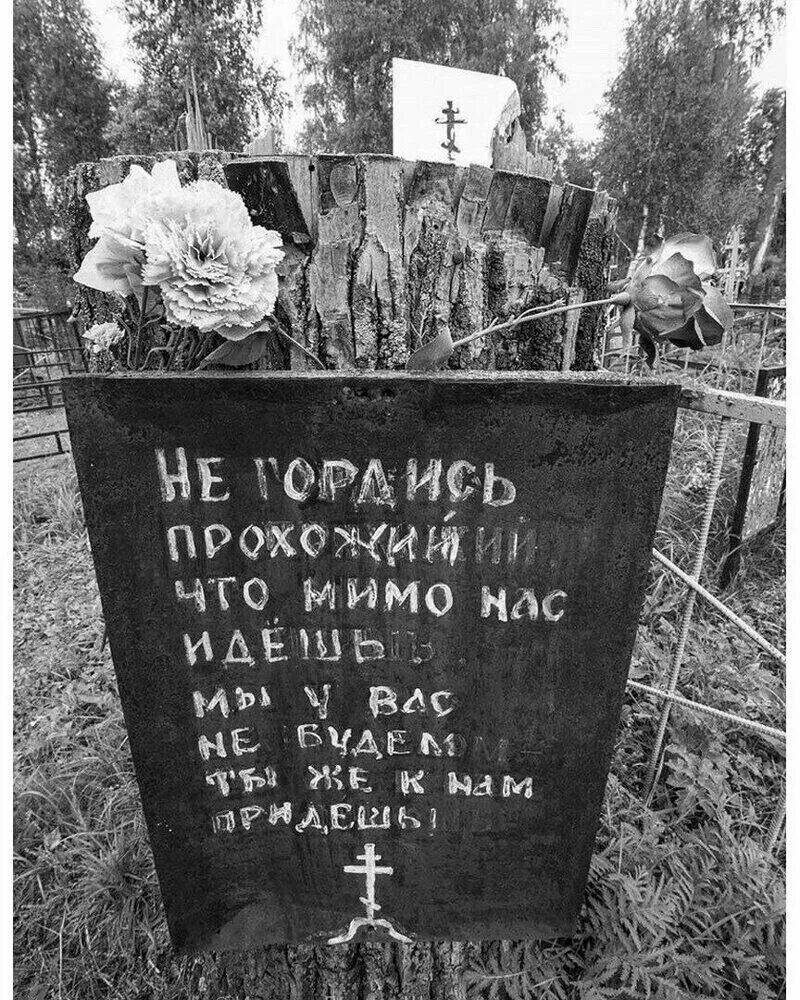 НЕ ГОРДИСЬ
ПРОХОЖИЙ
ЧТО МИМО НАС
ИДЁШЬ
МЫ У ВАС
НЕ БУДЕМ
ТЫ ЖЕ К НАМ
ПРИДЕШЬ!